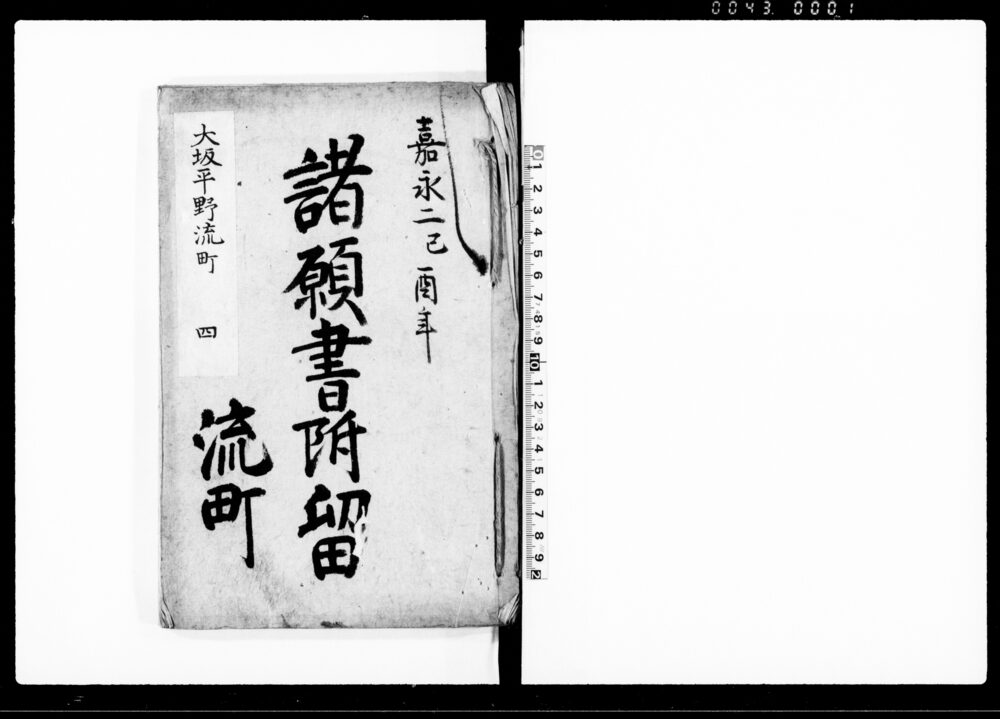 0043 0001
嘉永二己酉年
諸願書附留
流町
大坂平野流町 四
0 1 2 3 4 5 6 7 8 9 10 1 2 3 4 5 6 7 8 9 2